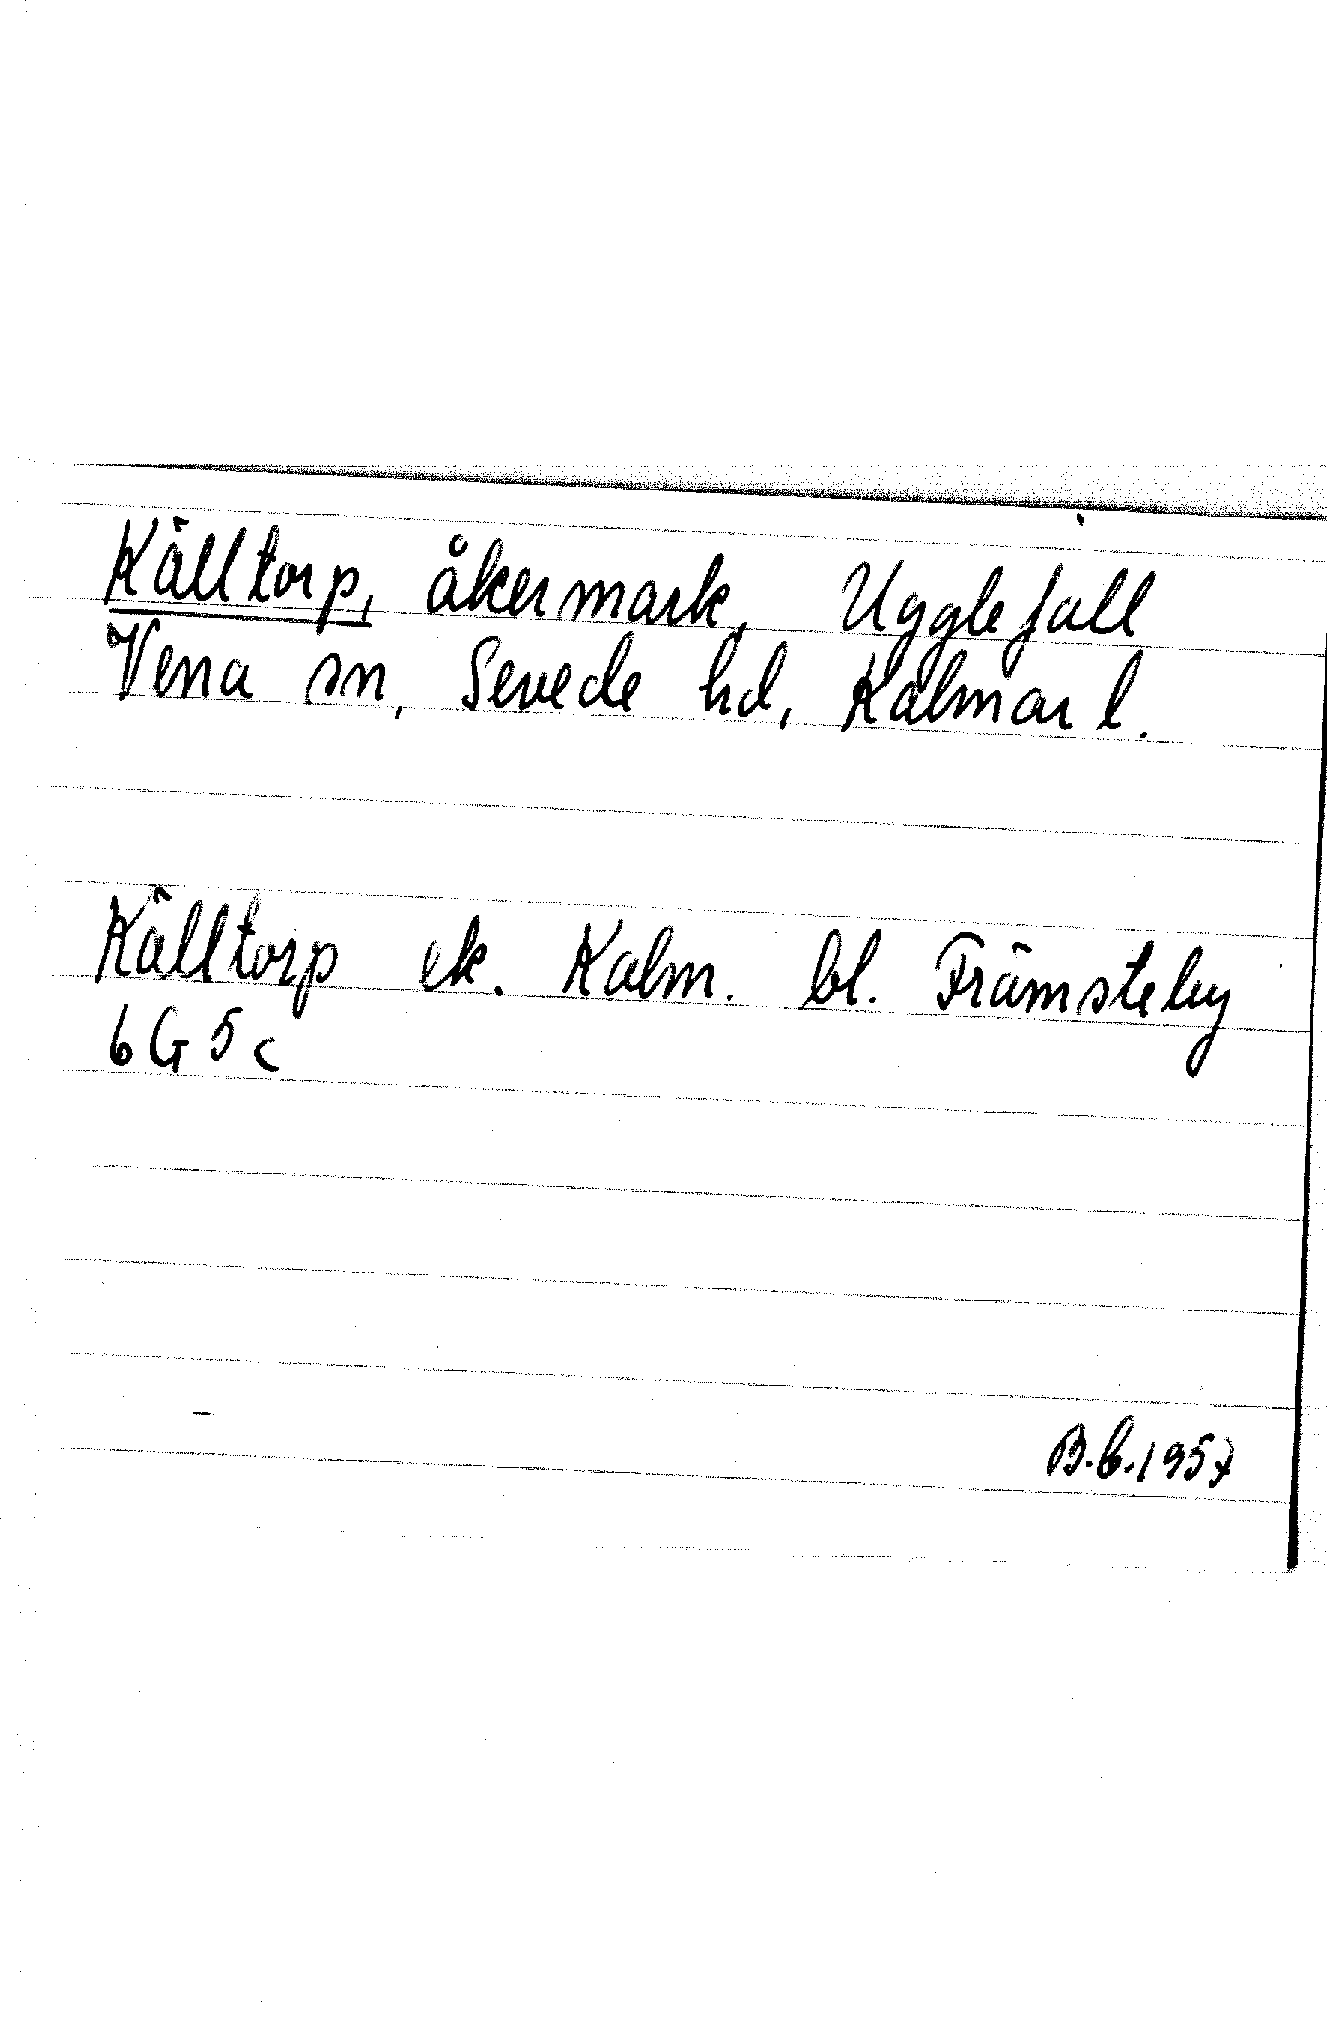 Källtorp, åkermark, Ugglefall
Vena sn, Sevede hd, Kalmar l.
Källtorp ek. Kalm. bl. Främsteby
6G5c
B.G.1957